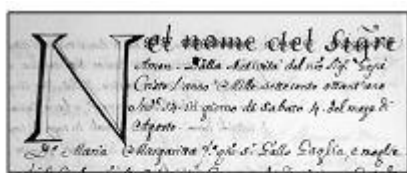 Nel nome del Sigre
Amen. Dalla Natività del nro Sigr Gesù
Cristo l'anno Mille settecento ottant'uno
Indne 14 il giorno di Sabato 4 del mese di
Agosto
Da Maria Margarita qm Gallo Gaglia, e moglie